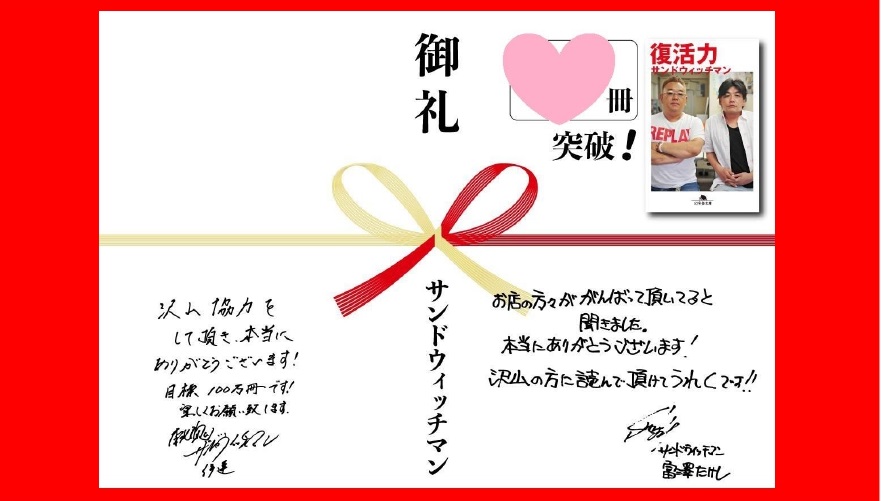 御礼
冊
突破！
復活力
サンドウィッチマン
REPLAY
幻冬舎文庫
サンドウィッチマン
沢山協力を
して頂き、本当に
ありがとうございます！
目標100万冊です！
宜しくお願い致します。
サンドウィッチマン
伊達
お店の方々ががんばって頂いてると
聞きました。
本当にありがとうございます！
沢山の方に読んで頂けてうれしいです!!
サンドウィッチマン
富澤たけし